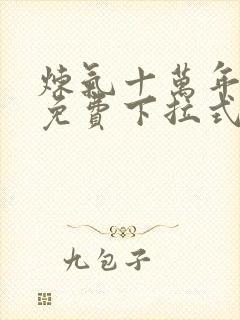 煉氣十萬年
免費下拉式
九包子